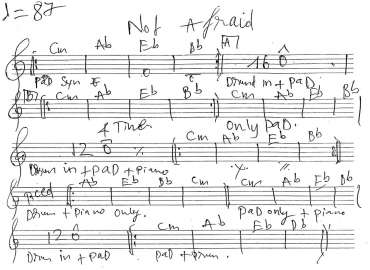 ♩=87 Not Afraid
Cm Ab Eb Bb A
16
Pad syn Drum in + pad.
B Cm Ab Eb Bb Cm Ab Eb Bb
4 Times only pad.
Cm Ab Eb Bb
12
Drum in + pad + piano
Ab Eb Bb Cm Cm Ab Eb Bb
Drum + piano only. pad only + piano
12 Cm Ab Eb Bb
Drum in + pad pad + Drum.